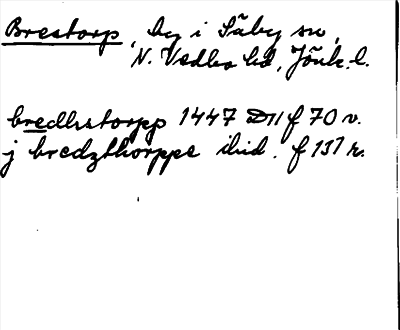 Brestorp, by i Säby sn,
N. Vedbo hd, Jönk. l.
bredhstorpp 1447 D11 f 70 v.
j bredzthorppe ibid. f 137 r.